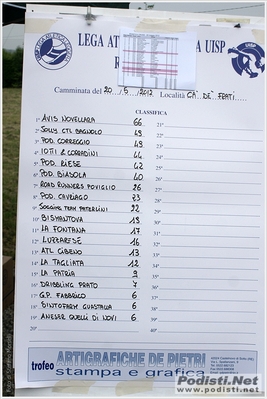 www.podisti.net
LEGA AT A UISP
UISP
R
Camminata del 20/5/2012 Località CA' DE' FRATI
CLASSIFICA
1° AVIS NOVELLARA 66
2° SOLLY CTL BAGNOLO 49
3° POD. CORREGGIO 49
4° IOTTI & CORRADINI 44
5° POD. BIESE 42
6° POD. BIASOLA 40
7° ROAD RUNNERS POVIGLIO 26
8° POD. CAVRIAGO 23
9° JOGGING TEAM PATERLINI 22
10° BISMANTOVA 19
11° LA FONTANA 17
12° LUZZARESE 16
13° ATL CIBENO 13
14° LA TAGLIATA 12
15° LA PATRIA 9
16° DRIBBLING PRATO 7
17° G.P. FABBRICO 6
18° BIKTOFARM GUASTALLA 6
19° ANESER QUELLI DI NOVI 6
20°
21°
22°
23°
24°
25°
26°
27°
28°
29°
30°
31°
32°
33°
34°
35°
36°
37°
38°
39°
40°
trofeo ARTIGRAFICHE DE PIETRI
stampa e grafica
Podisti.Net
www.podisti.net